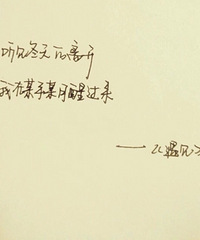 听见冬天的离开
我在某年某月醒过来
——以遇见